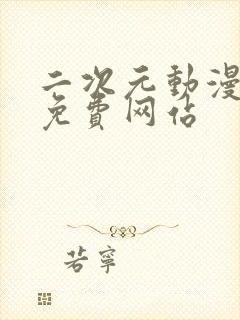 二次元動漫
免費网佔
若寧